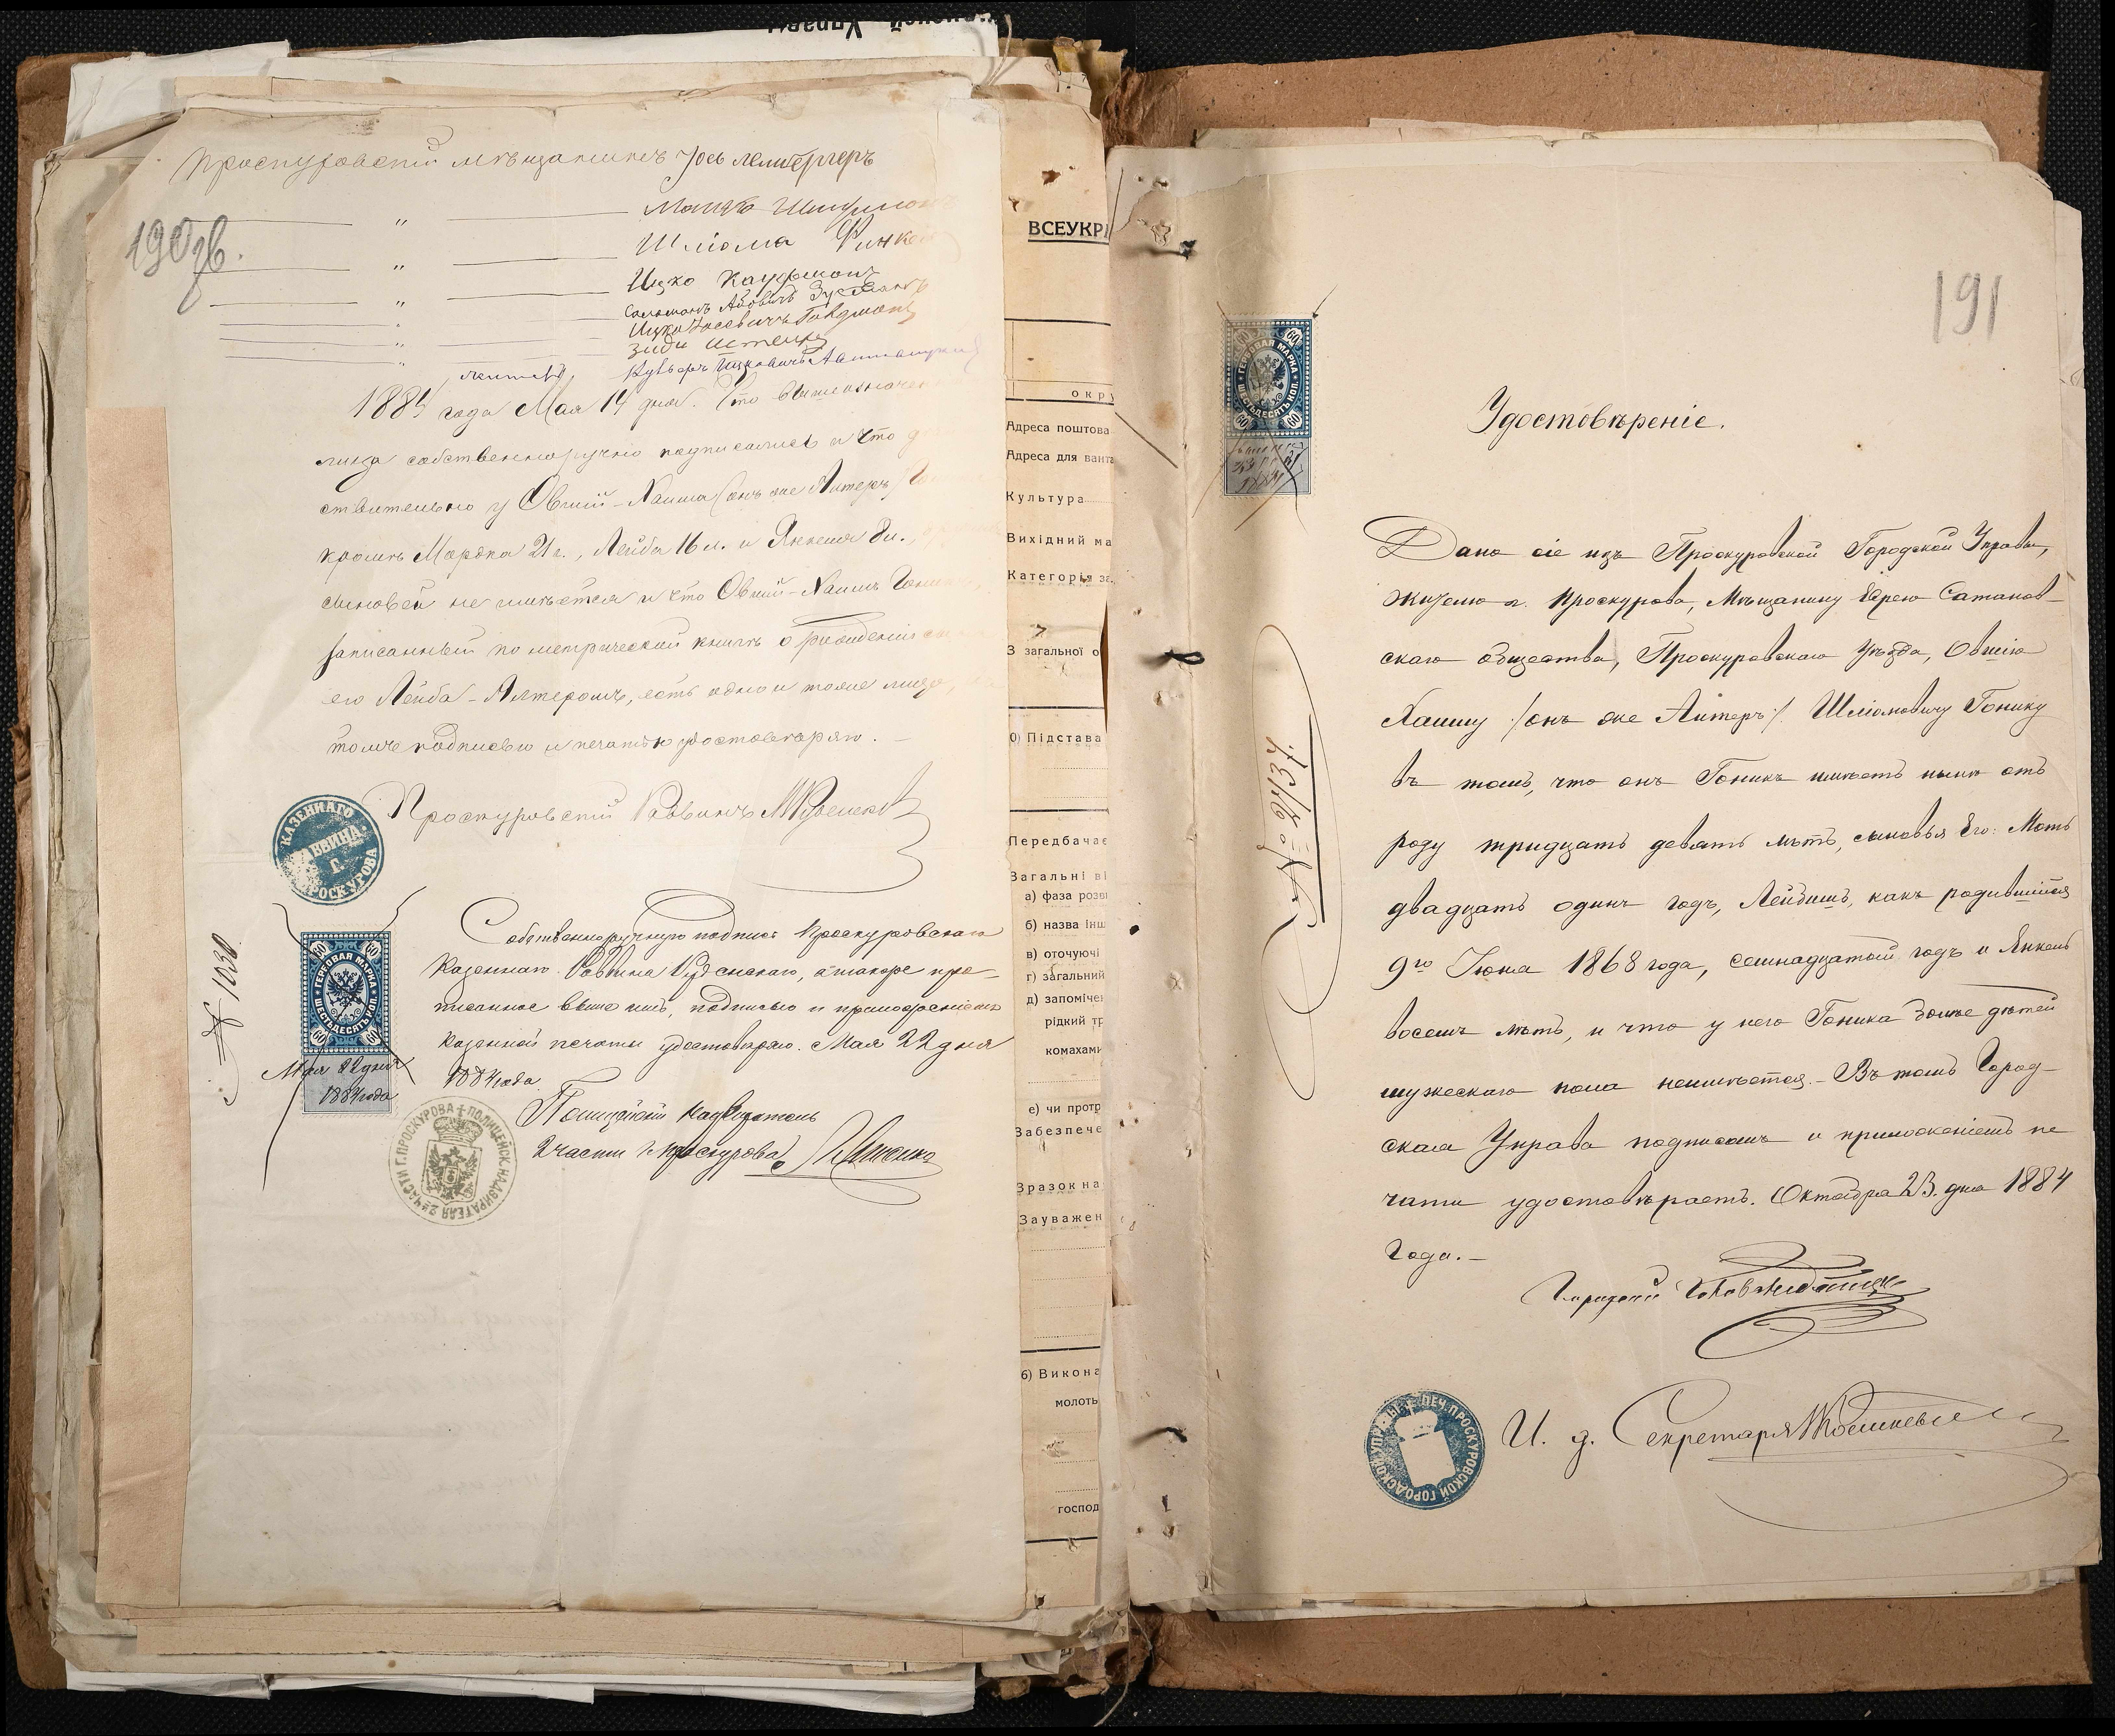 Проскуровскій мѣщанинъ Іось Лембергеръ
190 зв.
" Мошко
" Шліома Финкел
" Ицко Кауфманъ
" Сальмонъ Абовичъ
" Ицко Іосевичъ Гольдманъ
" Зиди
" житель Ицковичъ
1884 года Мая 14 дня. Что вышеозначен
лица собственноручно подписались и что д
ствительно у Овший-Хаима (онъ же Алтеръ) Го
кромѣ Мордка 21 г., Лейба 16 л. и Янкеля 8 л.,
сыновей не имѣется и что Овший-Хаимъ Гоник
записанный по метрической книгѣ о рожденіи
его Лейба-Алтеромъ, есть одно и тоже лицо,
томъ подписью и печатью удостовѣряю. —
Проскуровскій Раввинъ
КАЗЕННАГО РАВВИНА Г. ПРОСКУРОВА
Собственноручную подпись Проскуровскаго
Казеннаго Раввина, а также про-
писанное выше имъ, подписью и приложеніемъ
Казенной печати удостовѣряю. Мая 22 дня
1884 года
№ 1030
60 60
ГЕРБОВАЯ МАРКА
ШЕСТЬДЕСЯТЪ КОП.
60 60
Мая 22 дня
1884 года
Полицейскій Надзиратель
2 части г. Проскурова
2й ЧАСТИ Г. ПРОСКУРОВА ПОЛИЦЕЙСК. НАДЗИРАТЕЛЯ
ВСЕУКР
окру
Адреса поштова
Адреса для ванта
Культура
Вихідний ма
Категорія за
З загальної о
Підстава
Передбачає
Загальні ві
а) фаза розв
б) назва інш
в) оточуючі
г) загальний
д) запоміче
рідкий тр
комахами
е) чи протр
Забезпече
Зразок на
Зауважен
6) Викона
молоть
господ
191
60 60
ГЕРБОВАЯ МАРКА
ШЕСТЬДЕСЯТЪ КОП.
60 60
1884
Удостовѣреніе.
Дано сіе изъ Проскуровской Городской Управы,
жителю г. Проскурова, Мѣщанину Еврею Сатанов-
скаго общества, Проскуровскаго Уѣзда, Овшію
Хаиму /онъ же Алтеръ/ Шліомовичу Гонику
въ томъ, что онъ Гоникъ имѣетъ нынѣ отъ
роду тридцать девять лѣтъ, сыновья Его: Моть
двадцать одинъ годъ, Лейбишъ, какъ родившійся
9го Іюня 1868 года, семнадцатый годъ и Янкель
восемь лѣтъ, и что у него Гоника болѣе дѣтей
мужескаго пола неимѣется. – Въ томъ Город-
ская Управа подписомъ и приложеніемъ пе
чати удостовѣряетъ. Октября 23. дня 1884
Года. –
Городской Голова
И. д. Секретаря
ПЕЧ. ПРОСКУРОВСКОЙ ГОРОДСКОЙ УПРАВЫ